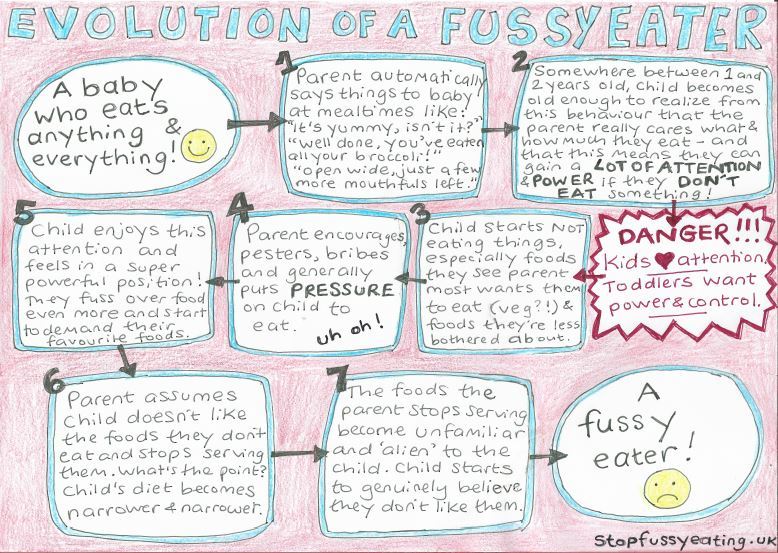 EVOLUTION OF A FUSSY EATER
A baby
who eats
anything &
everything!
1
Parent automatically
says things to baby
at mealtimes like:
"it's yummy, isn't it?"
"well done, you've eaten
all your broccoli!"
"open wide, just a few
more mouthfuls left."
2
Somewhere between 1 and
2 years old, Child becomes
old enough to realize from
this behaviour that the
parent really cares what &
how much they eat - and
that this means they can
gain a LOT OF ATTENTION
& POWER if they DON'T
EAT something!
DANGER!!!
Kids ♥ attention.
Toddlers want
power & control.
3
Child starts NOT
eating things,
especially foods
they see parent
most wants them
to eat (veg?!) &
foods they're less
bothered about.
4
Parent encourages,
pesters, bribes
and generally
puts PRESSURE
on child to
eat.
uh oh!
5
Child enjoys this
attention and
feels in a super
powerful position!
They fuss over food
even more and start
to demand their
favourite foods.
6
Parent assumes
Child doesn't like
the foods they don't
eat and stops serving
them. What's the point?
Child's diet becomes
narrower & narrower.
7
The foods the
parent stops serving
become unfamiliar
and 'alien' to the
child. Child starts
to genuinely believe
they don't like them.
A
fussy
eater!
Stopfussyeating.uk